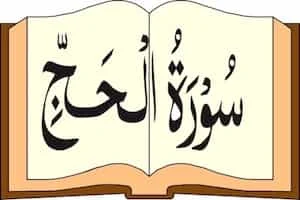 سُوْرَةُ الْحَجِّ